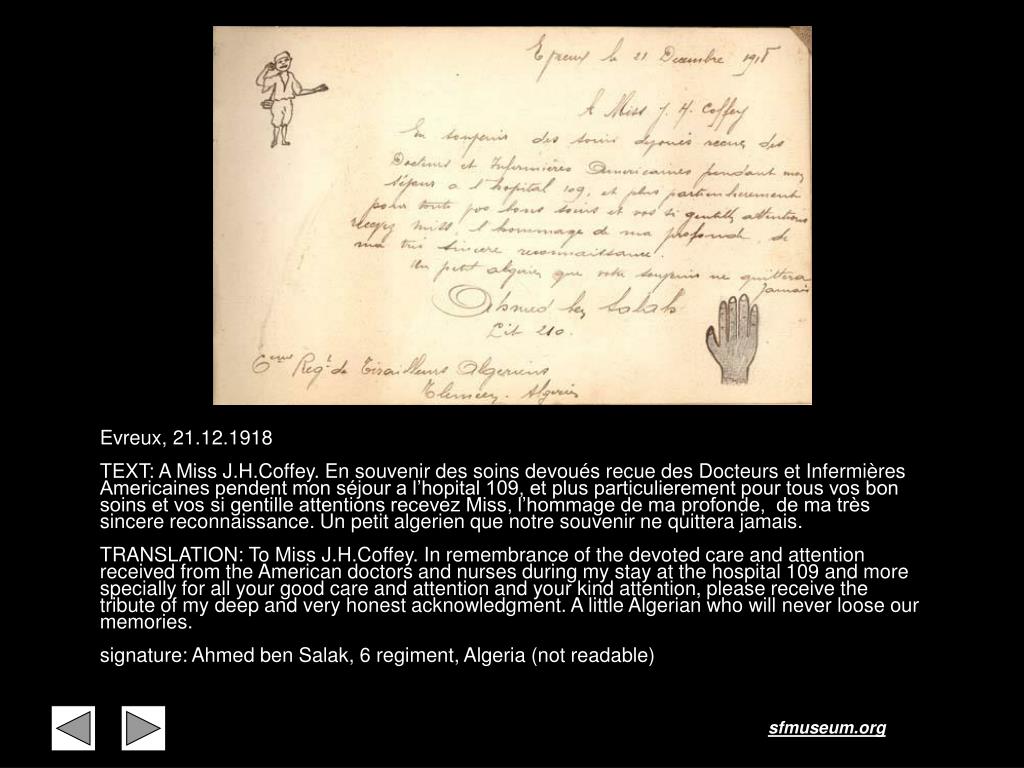 Evreux le 21 Decembre 1918
A Miss J. H. Coffey
En souvenir des soins devoués recus des
Docteurs et Infermières Americaines pendant mon
séjour a l'hopital 109, et plus particulierement
pour touts vos bons soins et vos si gentills attentions
recevez Miss, l'hommage de ma profonde, de
ma très sincere reconnaissance.
Un petit algerien que votre souvenir ne quittera
Jamais
Ahmed ben Salah
Lit 210.
6eme Regt de Tirailleurs Algeriens
Tlemcen. Algerie
Evreux, 21.12.1918
TEXT: A Miss J.H.Coffey. En souvenir des soins devoués recue des Docteurs et Infermières
Americaines pendent mon séjour a l'hopital 109, et plus particulierement pour tous vos bon
soins et vos si gentille attentions recevez Miss, l'hommage de ma profonde, de ma très
sincere reconnaissance. Un petit algerien que notre souvenir ne quittera jamais.
TRANSLATION: To Miss J.H.Coffey. In remembrance of the devoted care and attention
received from the American doctors and nurses during my stay at the hospital 109 and more
specially for all your good care and attention and your kind attention, please receive the
tribute of my deep and very honest acknowledgment. A little Algerian who will never loose our
memories.
signature: Ahmed ben Salak, 6 regiment, Algeria (not readable)
sfmuseum.org